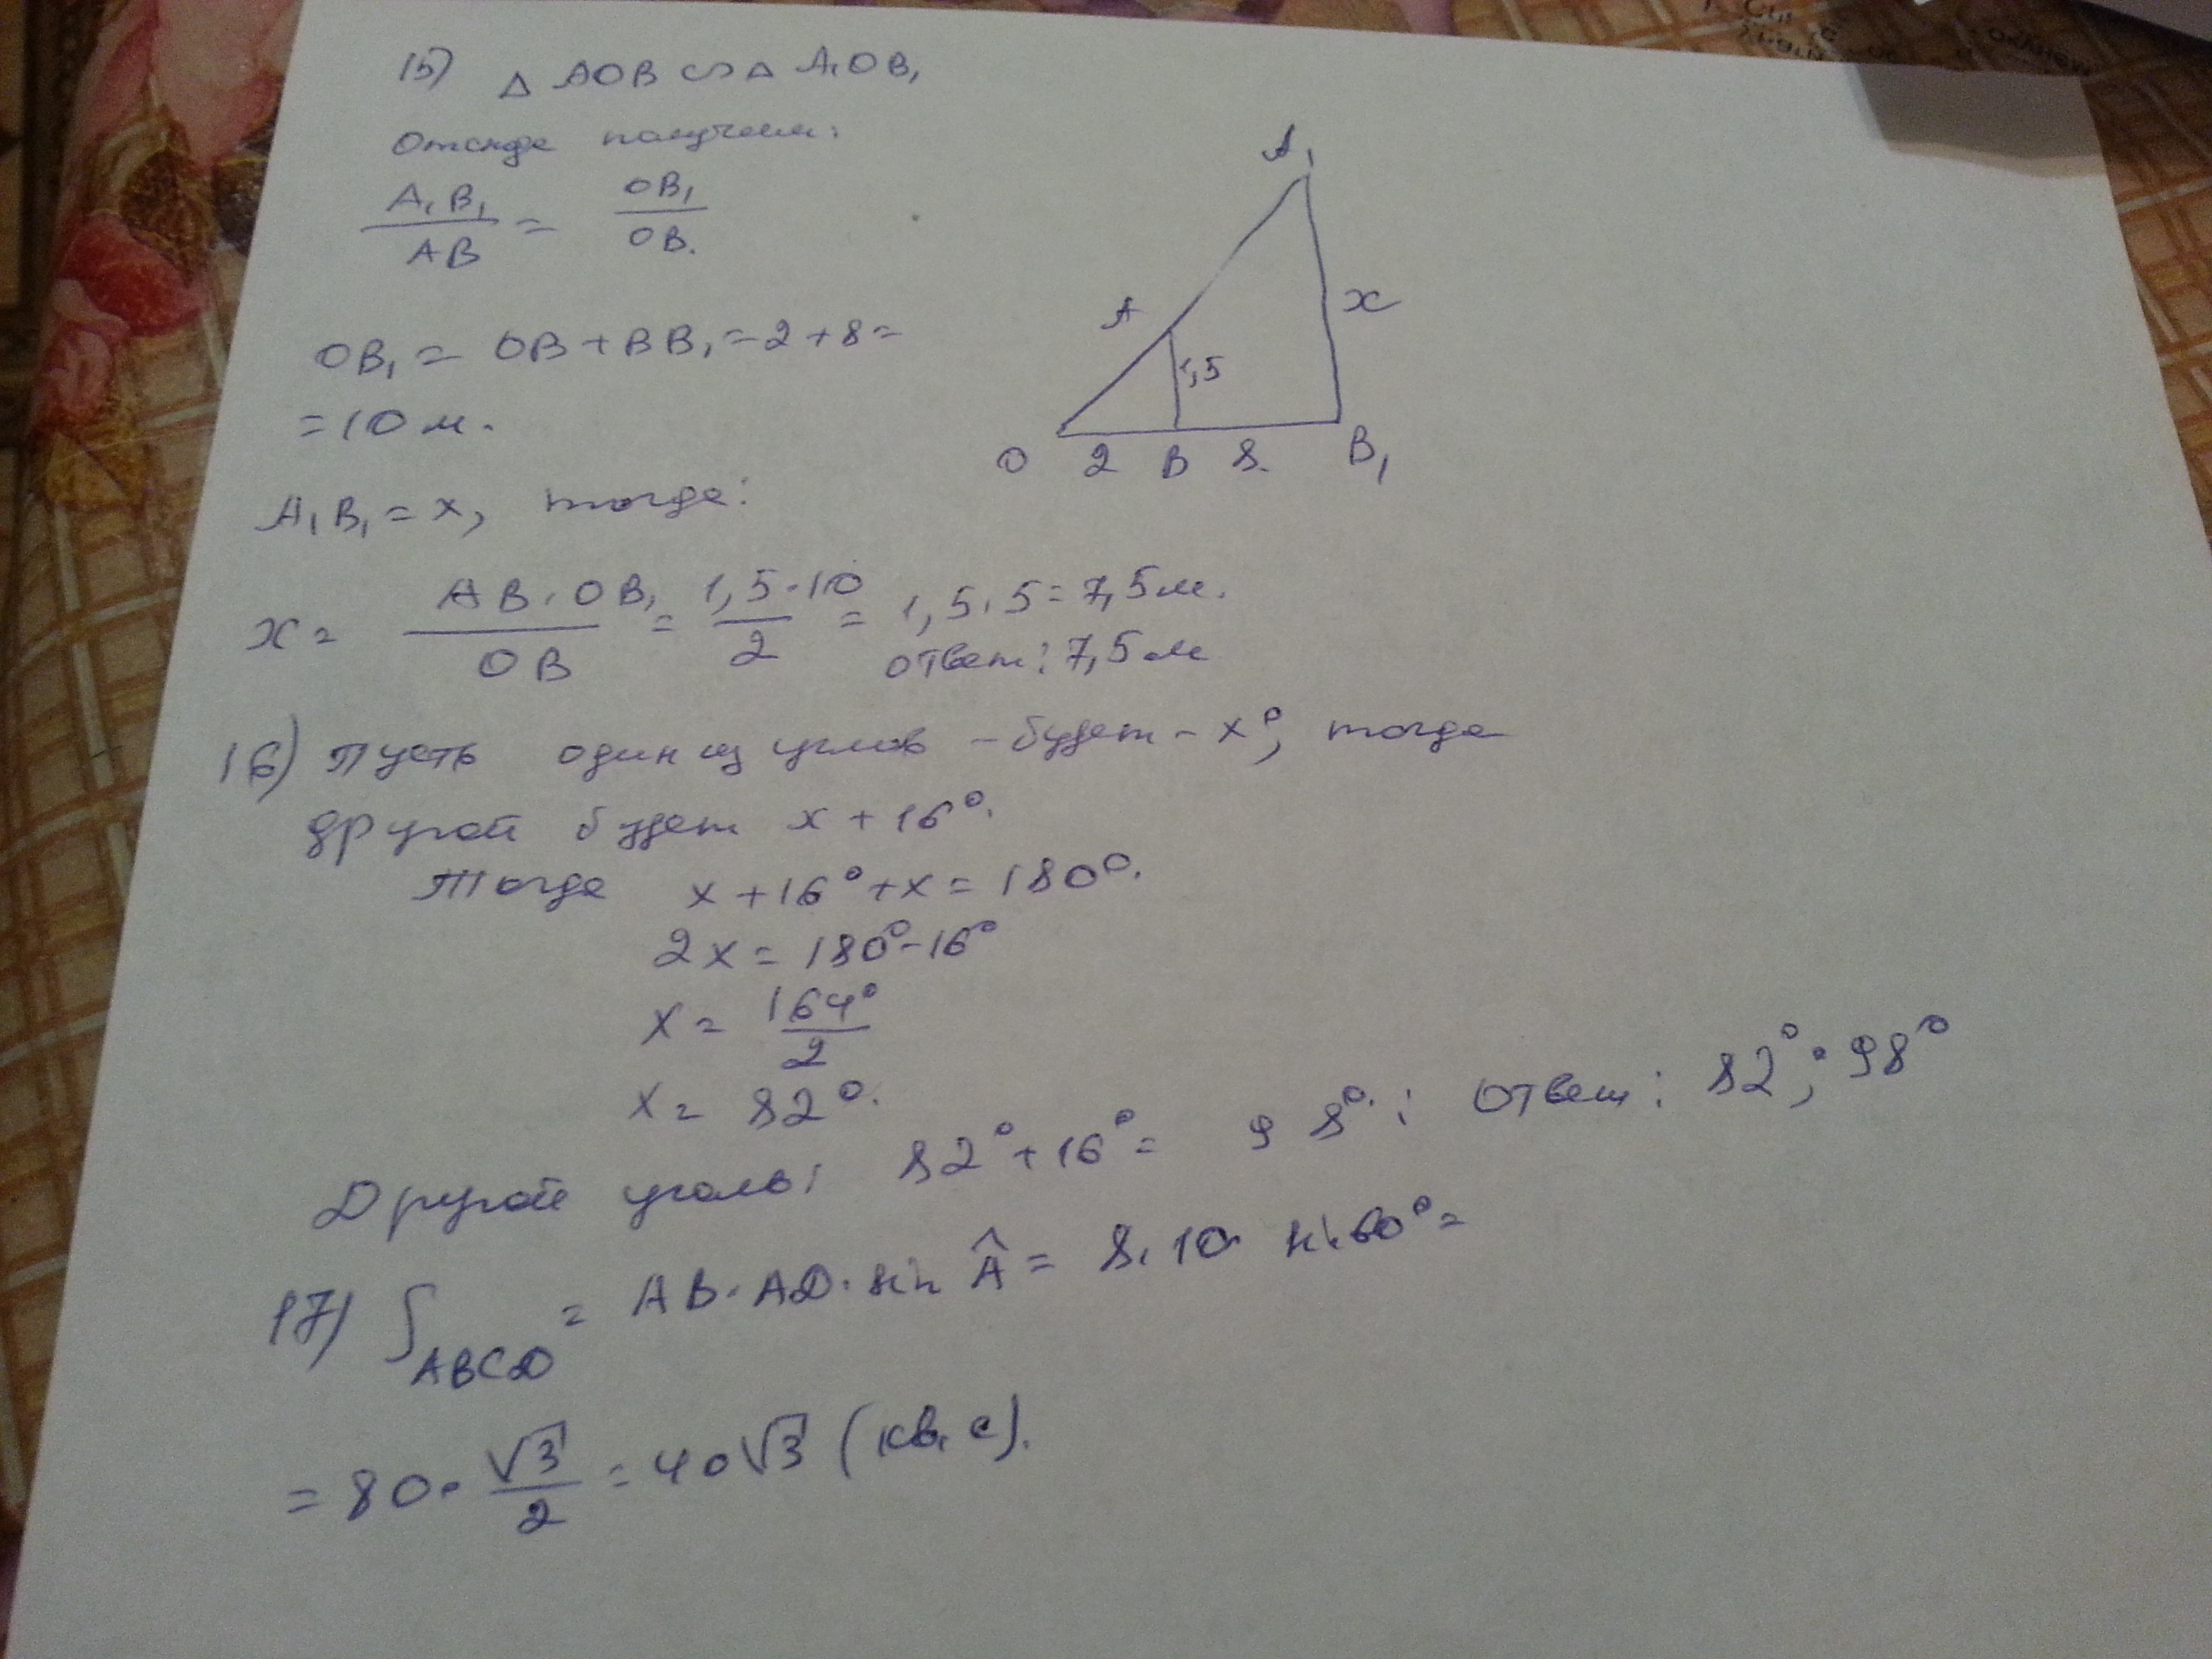 15) △ AOB ∽ △ A₁OB₁
Отсюда получаем:
A₁B₁/AB = OB₁/OB.
OB₁ = OB + BB₁ = 2 + 8 =
= 10 м.
A₁B₁ = x, тогда:
x = AB·OB₁/OB = 1,5·10/2 = 1,5·5 = 7,5 м.
ответ: 7,5 м
A₁
A
x
1,5
O 2 B 8 B₁
16) Пусть один из углов – будет – x°, тогда
другой будет x + 16°.
Тогда x + 16° + x = 180°.
2x = 180° - 16°
x = 164°/2
x = 82°.
Другой уголь: 82° + 16° = 98°; Ответ: 82°; 98°
17) S ABCD = AB·AD·sin Â = 8·10· sin 60° =
= 80· √3/2 = 40√3 (кв. с).